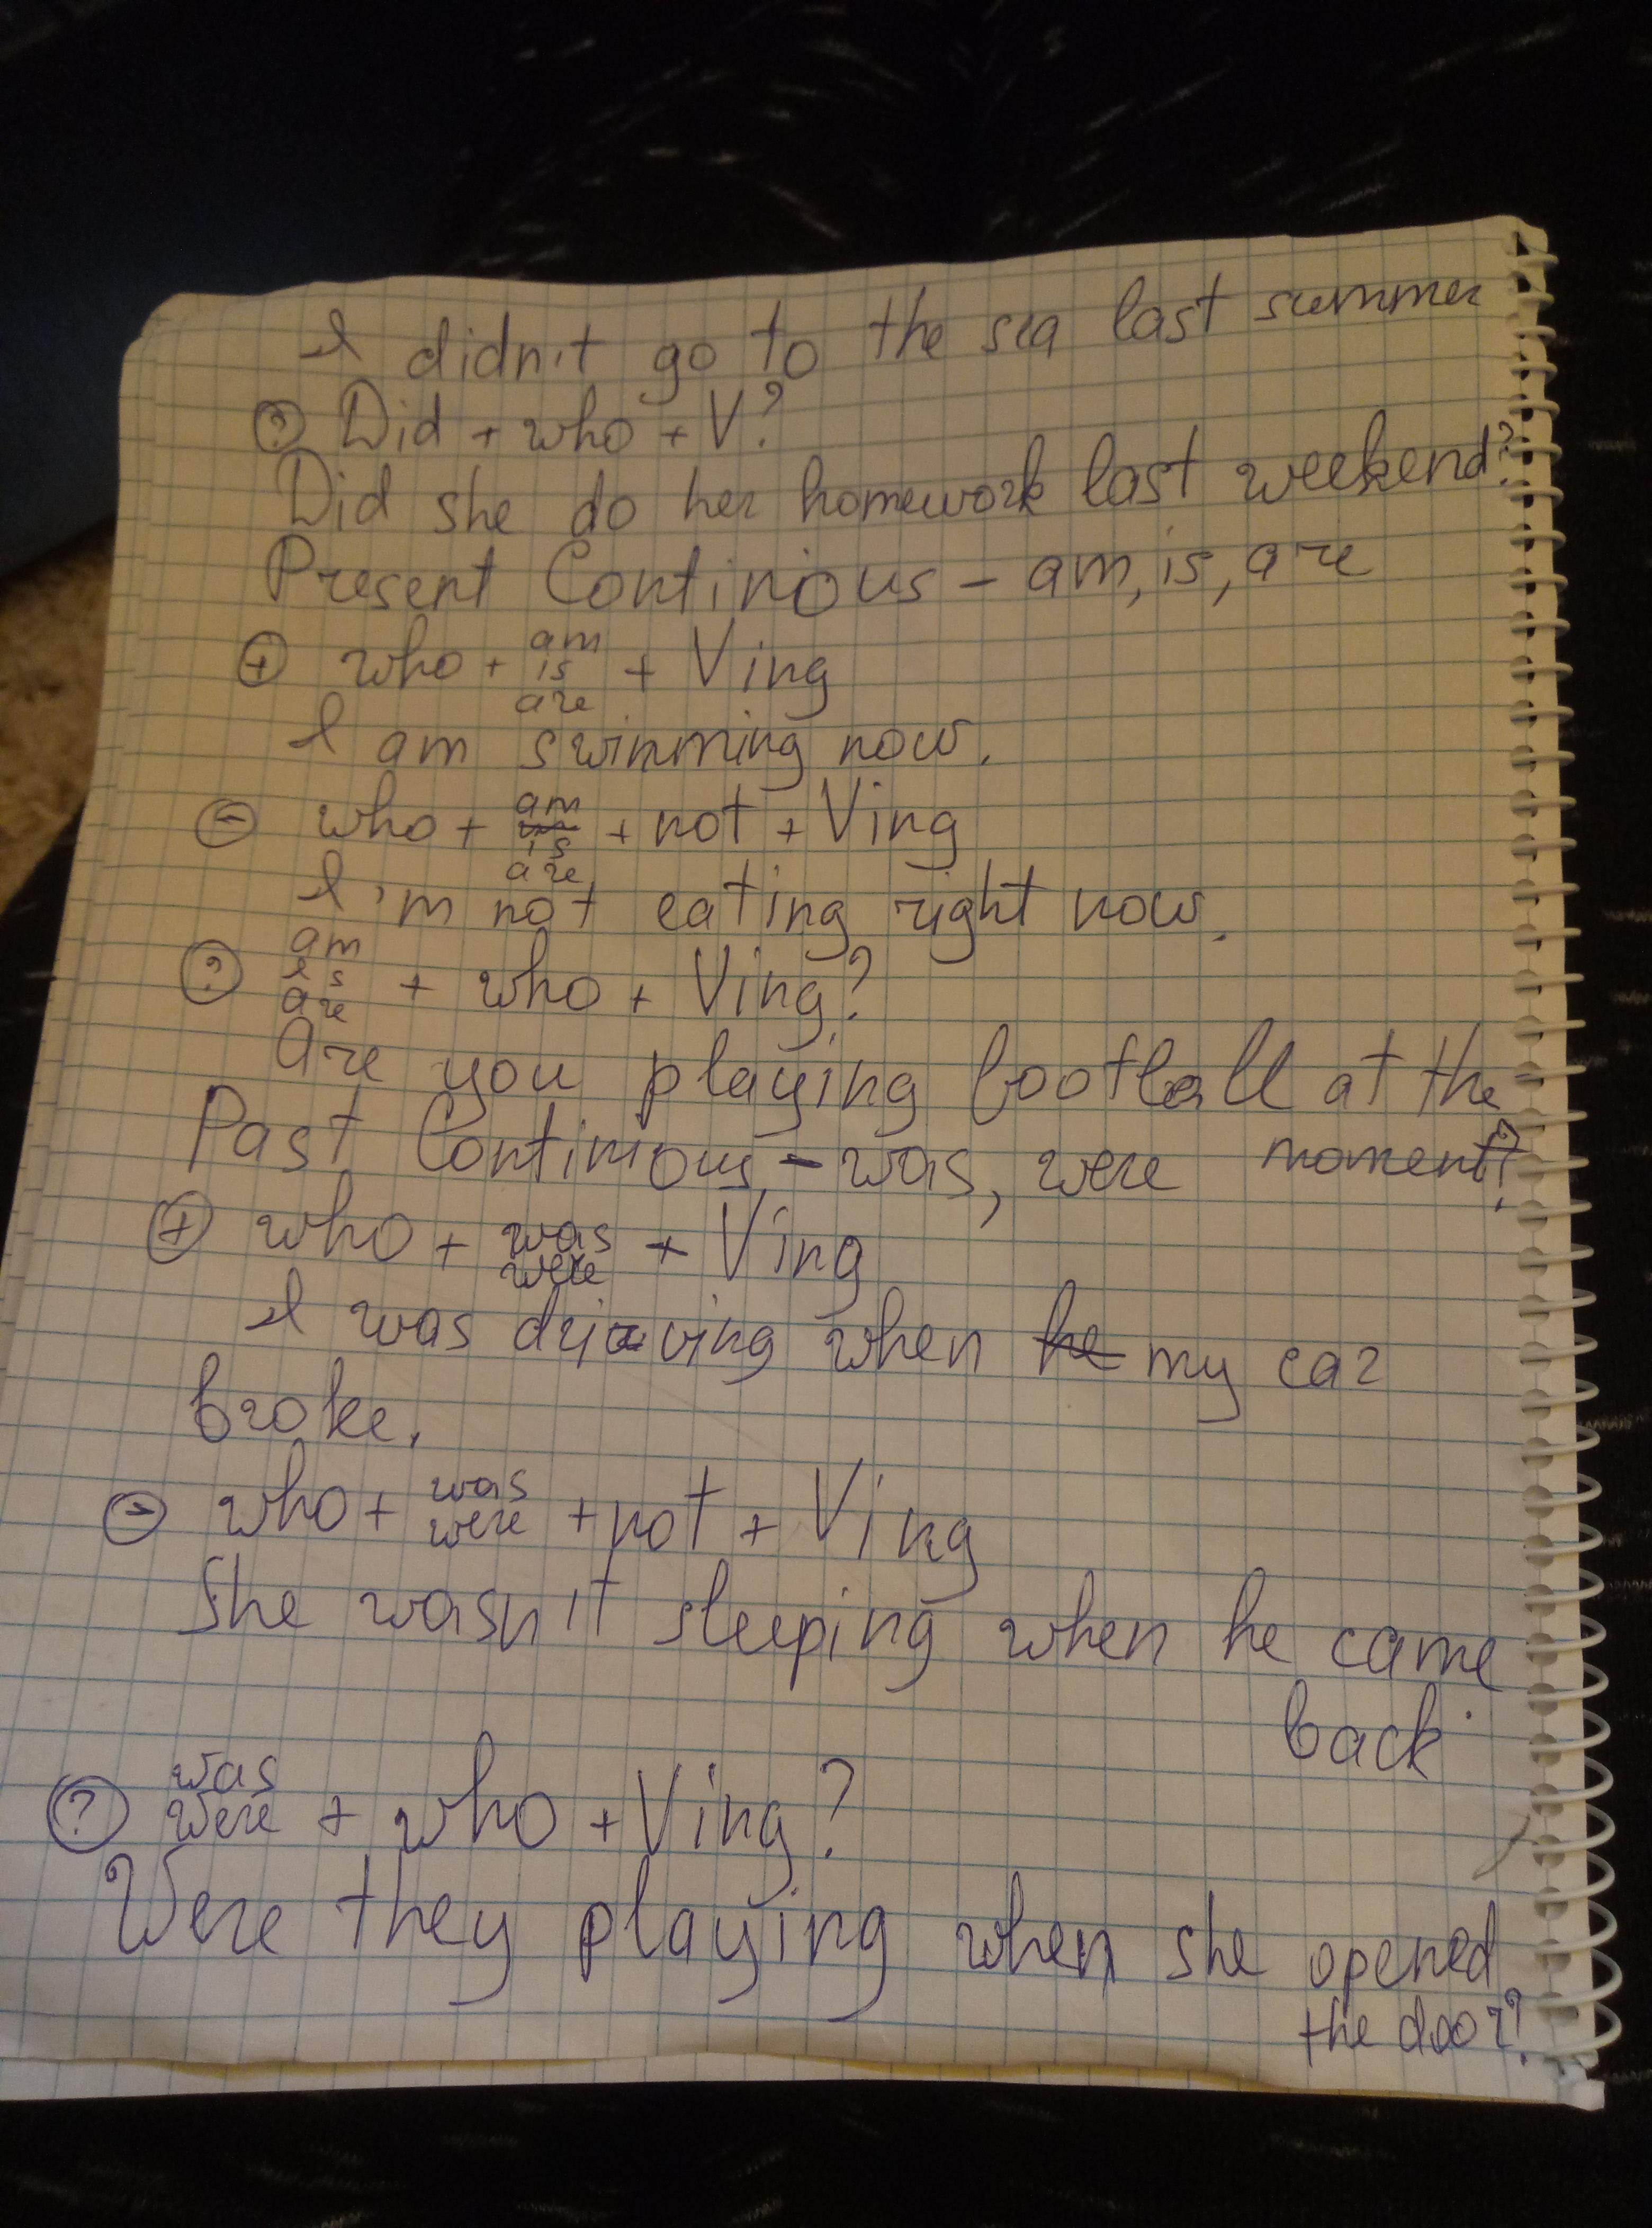 I didn't go to the sea last summer
? Did + who + V?
Did she do her homework last weekend?
Present Continious - am, is, are
+ who + am is are + Ving
I am swimming now.
- who + am is are + not + Ving
I'm not eating right now.
? am is are + who + Ving?
Are you playing football at the
moment?
Past Continious - was, were
+ who + was were + Ving
I was driving when he my car
broke.
- who + was were + not + Ving
She wasn't sleeping when he came
back.
? was were + who + Ving?
Were they playing when she opened
the door?